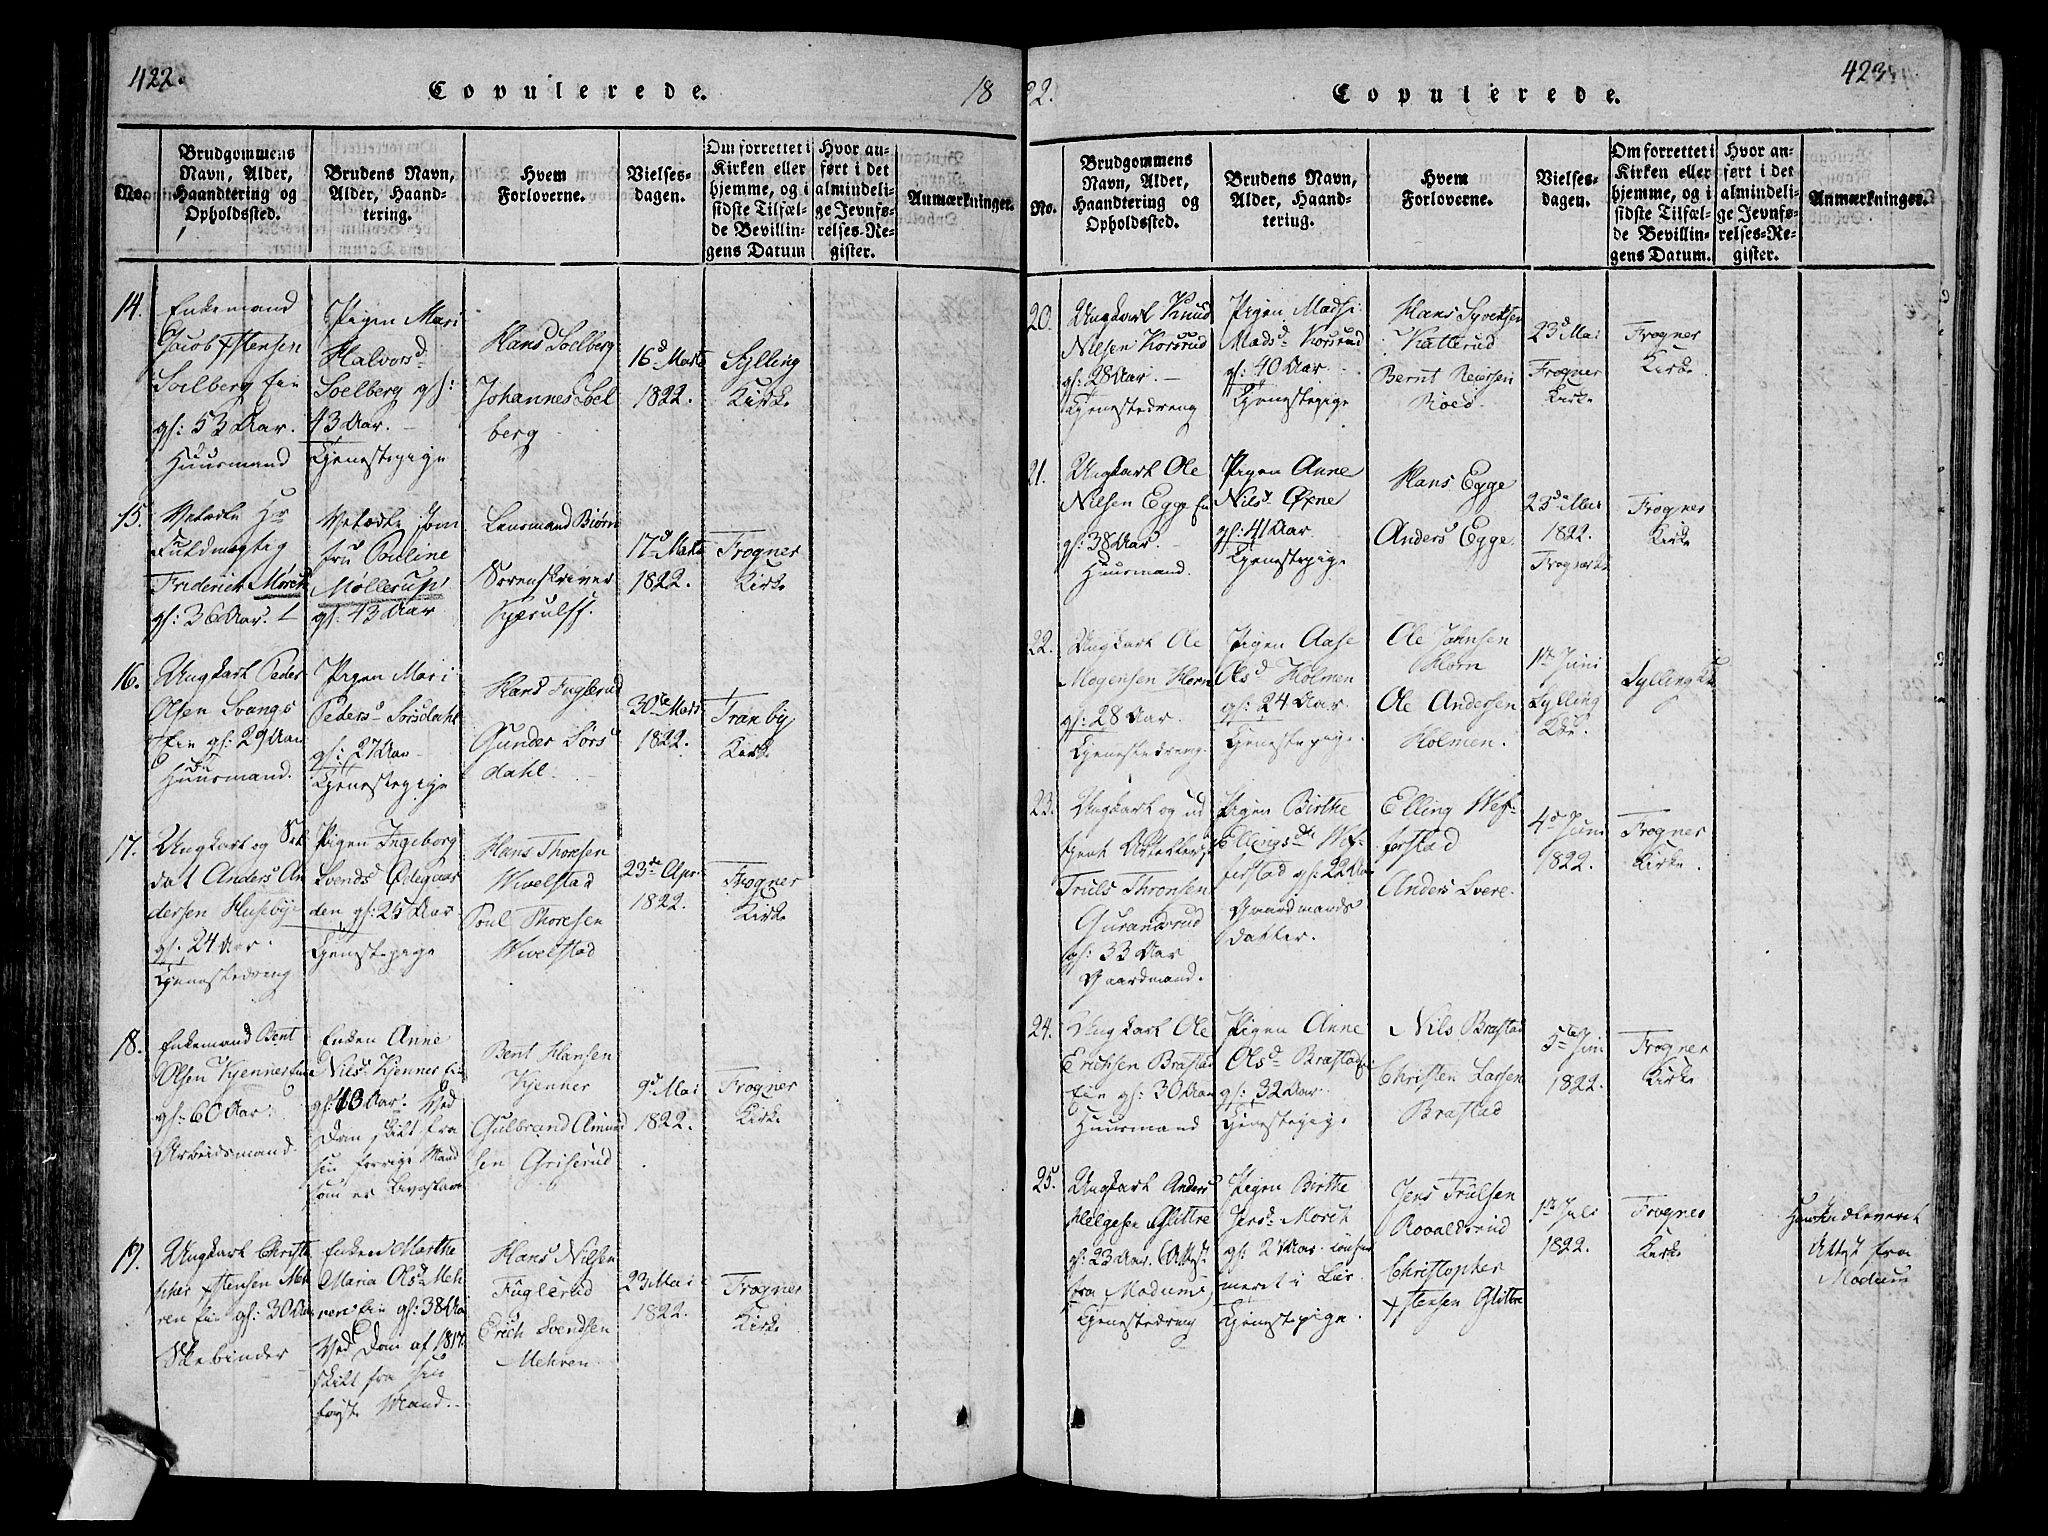 422.
Copulerede.
18
No.
Brudgommens
Navn, Alder,
Haandtering og
Opholdssted.
Brudens Navn,
Alder, Haand-
tering.
Hvem
Forloverne.
Vielses-
dagen.
Om forrettet i
Kirken eller
hjemme, og i
sidste Tilfæl-
de Bevillin-
gens Datum
Hvor an-
ført i det
almindeli-
ge Jevnfø-
relses-Re-
gister.
Anmærkninger.
14.
Enkemand
Jacob Estensen
Soelberg Eie
gl: 53 Aar.
Huusmand
Pigen Mari
Halvorsd
Soelberg gl:
43 Aar.
Tjenestepige
Hans Soelberg
Johannes Soel
berg
16d Marts
1822.
Sylling
Kirke
15.
Velædle Hr
Fuldmægtig
Friderich Mørch
gl: 36 Aar.
Velædle Jom
fru Pouline
Møllerup
gl: 43 Aar
Lensmand Biørn
Sorenskriver
17d Marts
1822.
Frogner
Kirke
16.
Ungkarl Peder
Olsen Svangs
Eie gl: 29 Aar
Huusmand.
Pigen Mari
Pedersd Sørsdahl
gl: 27 Aar
Tjenestepige
Hans Fuglerud
Gunder Sørs
dahl.
30te Mars
1822.
Tranby
Kirke
17.
Ungkarl og Sol
dat Anders An
dersen Huseby
gl: 24 Aar.
Tjenestedreng
Pigen Ingeborg
Svendsd Ødegaar
den gl: 25 Aar
Tjenestepige
Hans Thoresen
Wivelstad
Poul Thoresen
Wivelstad
23de Apr.
1822.
Frogner
Kirke
18.
Enkemand Bent
Olsen Kjenner Eie
gl: 60 Aar.
Arbeidsmand.
Enken Anne
Nilsd Kjenner Eie
Ved
Dom skilt fra
sin forrige Mand
som er
Bent Hansen
Kjenner
Gulbrand Amund
sen Griserud
9d Mai
1822.
Frogner
Kirke
19.
Ungkarl Christo
pher Estensen Meh
ren Eie gl: 30 Aar
Skebinder
Enken Marthe
Maria Olsd Meh
rens Eie gl: 38 Aar
Ved Dom af 1817
skilt fra sin
første Mand.
Hans Nilsen
Fuglerud
Erich Svendsen
Mehren
23 Mai
1822.
Frogner
Kirke
22.
Copulerede.
423
No.
Brudgommens
Navn, Alder,
Haandtering og
Opholdssted.
Brudens Navn,
Alder, Haand-
tering.
Hvem
Forloverne.
Vielses-
dagen.
Om forrettet i
Kirken eller
hjemme, og i
sidste Tilfæl-
de Bevillin-
gens Datum.
Hvor an-
ført i det
almindeli-
ge Jevnfø-
relses-Re-
gister.
Anmærkninger.
20.
Ungkarl Knud
Nilsen Korsrud
gl: 28 Aar.
Tjenestedreng
Pigen Madsi
Madsd Korsrud
gl: 40 Aar.
Tjenestepige
Hans Syvertsen
Katterud
Bernt Reiersen
Roed.
23d Mai
Frogner
Kirke
Frogner
Kirke
21.
Ungkarl Ole
Nilsen Egge Eie
gl: 38 Aar.
Huusmand.
Pigen Anne
Nilsd Øxne
gl: 41 Aar
Tjenestepige
Hans Egge
Anders Egge
23de Mai
1822.
Frogner
Frogner
Kirke
22.
Ungkarl Ole
Mogensen Horn
gl: 28 Aar.
Tjenestedreng
Pigen Aase
Olsd Holmen
gl: 24 Aar.
Tjenestepige.
Ole Johnsen
Horn
Ole Andersen
Holmen.
1te Juni
Sylling
Sylling
23.
Ungkarl og ud
tjent
Truls Thronsen
Gurandsrud
gl: 33 Aar
Gaardmand.
Pigen Birthe
Ellingsdtr Wef-
ferstad gl: 22 Aar
Gaardmands
datter.
Elling Wef-
ferstad
Anders Svere.
4d Juni
1822.
Frogner
Kirke.
24.
Ungkarl Ole
Erichsen Brastad
Eie gl: 30 Aar
Huusmand
Pigen Anne
Olsd Brastad
gl: 32 Aar.
Tjenestepige
Nils Brastad
Christen Larsen
Brastad
5te Juni
1822.
Frogner
Kirke
25.
Ungkarl Anders
Helgesen Glittre
gl: 23 Aar. Attest
fra Modum
Tjenestedreng
Pigen Birthe
Jensd Morch
meret i Lier
Tjenestepige.
Jens Trulsen
Rovaldsrud
Christopher
Estensen Glittre
1te Juli
1822.
Frogner
Kirke
Attest fra
Modum